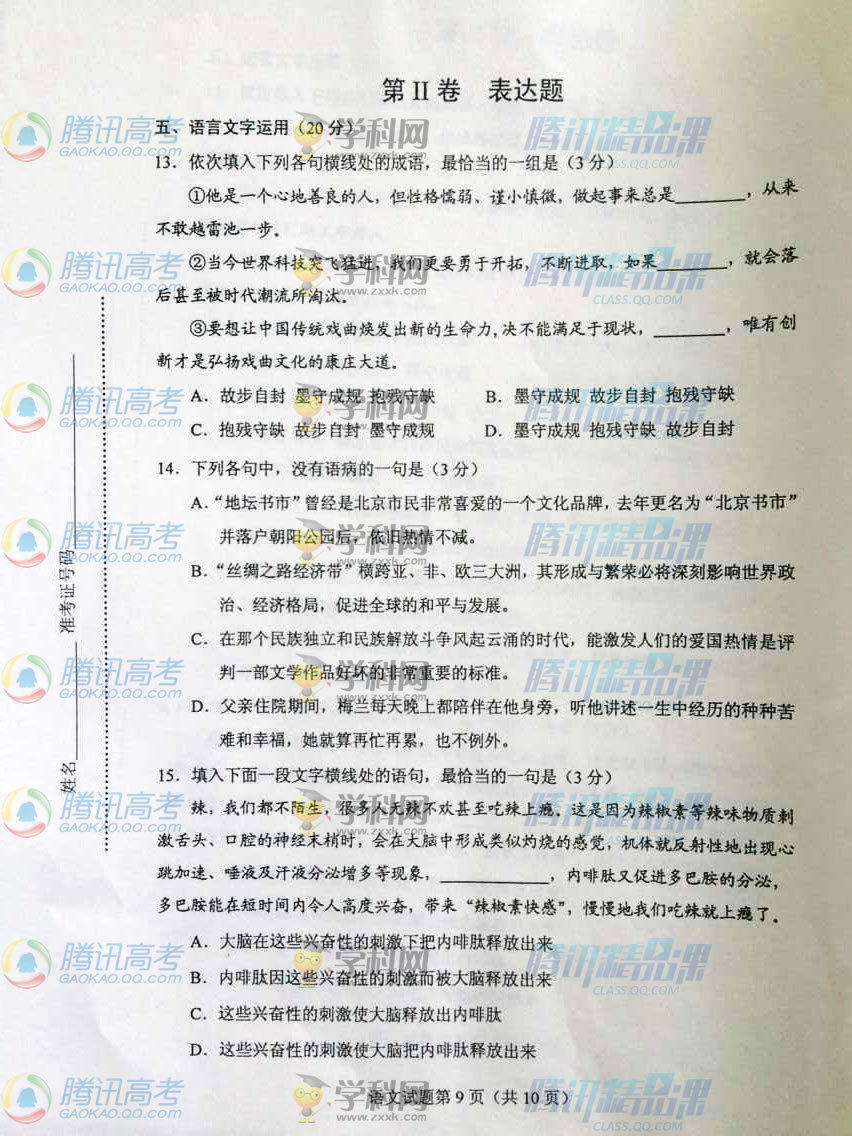 第 II 卷 表达题
五、语言文字运用（20 分）
13．依次填入下列各句横线处的成语，最恰当的一组是（3 分）
①他是一个心地善良的人，但性格懦弱、谨小慎微，做起事来总是________，从来
不敢越雷池一步。
②当今世界科技突飞猛进，我们更要勇于开拓，不断进取，如果________，就会落
后甚至被时代潮流所淘汰。
③要想让中国传统戏曲焕发出新的生命力,决不能满足于现状，________，唯有创
新才是弘扬戏曲文化的康庄大道。
A．故步自封 墨守成规 抱残守缺 B．墨守成规 故步自封 抱残守缺
C．抱残守缺 故步自封 墨守成规 D．墨守成规 抱残守缺 故步自封
14．下列各句中，没有语病的一句是（3 分）
A．“地坛书市”曾经是北京市民非常喜爱的一个文化品牌，去年更名为“北京书市”
并落户朝阳公园后，依旧热情不减。
B．“丝绸之路经济带”横跨亚、非、欧三大洲，其形成与繁荣必将深刻影响世界政
治、经济格局，促进全球的和平与发展。
C．在那个民族独立和民族解放斗争风起云涌的时代，能激发人们的爱国热情是评
判一部文学作品好坏的非常重要的标准。
D．父亲住院期间，梅兰每天晚上都陪伴在他身旁，听他讲述一生中经历的种种苦
难和幸福，她就算再忙再累，也不例外。
15．填入下面一段文字横线处的语句，最恰当的一句是（3 分）
辣，我们都不陌生，很多人无辣不欢甚至吃辣上瘾。这是因为辣椒素等辣味物质刺
激舌头、口腔的神经末梢时，会在大脑中形成类似灼烧的感觉，机体就反射性地出现心
跳加速、唾液及汗液分泌增多等现象，____________，内啡肽又促进多巴胺的分泌，
多巴胺能在短时间内令人高度兴奋，带来“辣椒素快感”，慢慢地我们吃辣就上瘾了。
A．大脑在这些兴奋性的刺激下把内啡肽释放出来
B．内啡肽因这些兴奋性的刺激而被大脑释放出来
C．这些兴奋性的刺激使大脑释放出内啡肽
D．这些兴奋性的刺激使大脑把内啡肽释放出来
语文试题第 9 页（共 10 页）
姓名________ 准考证号码________
腾讯高考
GAOKAO.QQ.COM
学科网
www.zxxk.com
腾讯精品课
CLASS.QQ.COM